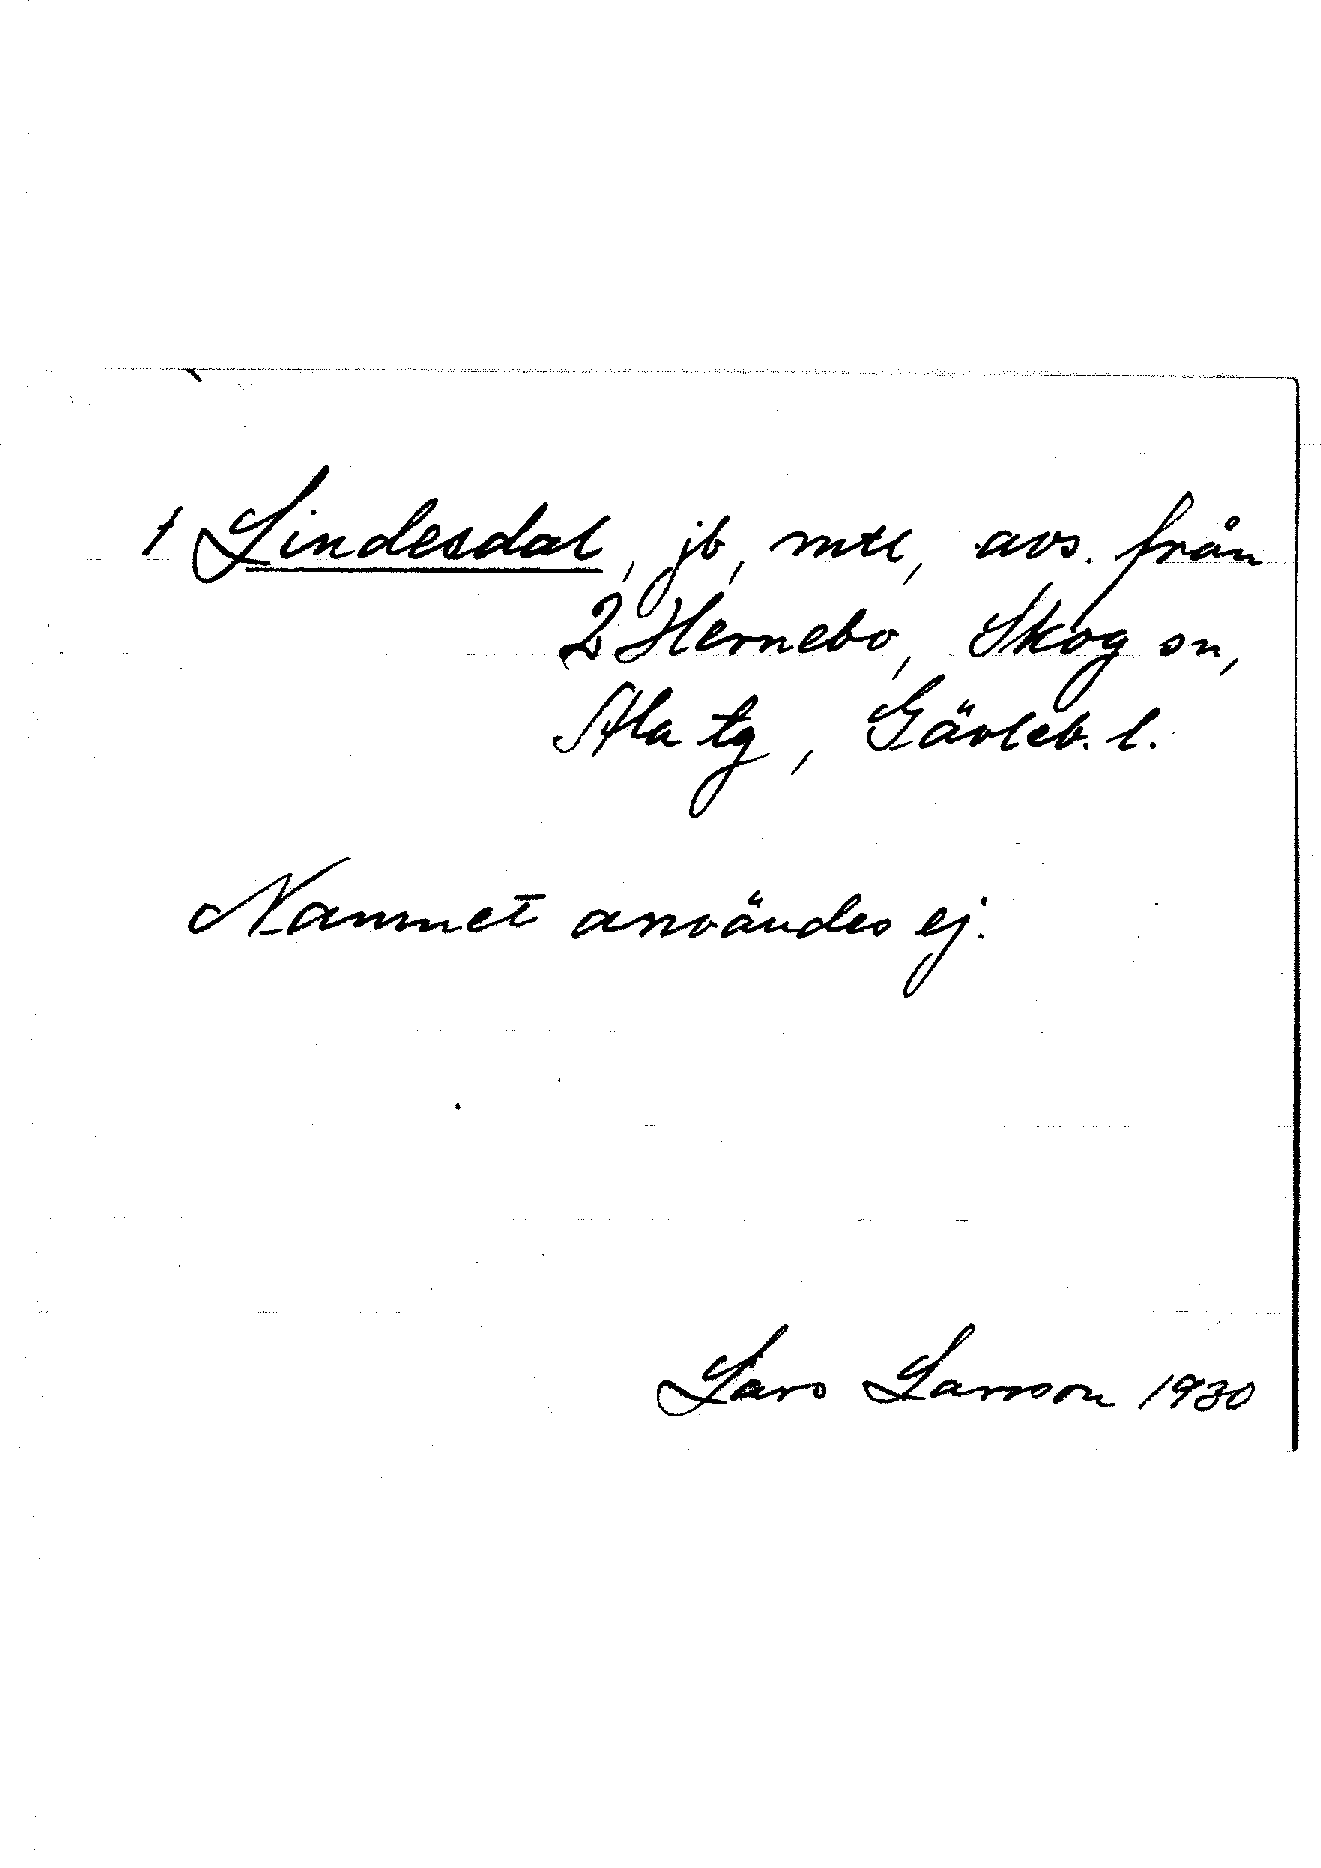 1 Lindesdal, jb, mtl, avs. från
2 Hernebo, Skog sn,
Ala tg, Gävleb. l.
Namnet användes ej.
Lars Larsson 1930